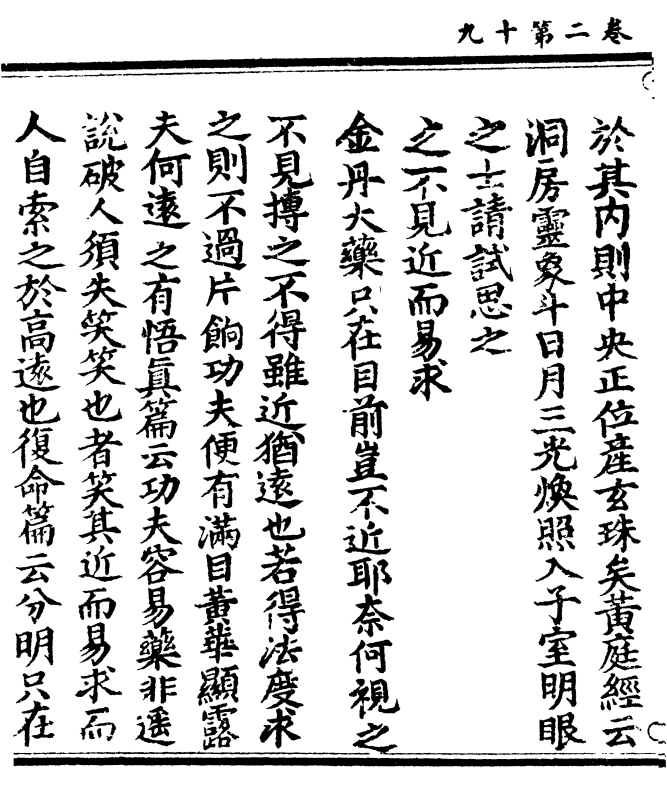 卷二第十九
於其内則中央正位産玄珠矣黄庭經云
洞房靈象斗日月三光煥照入子室明眼
之士請試思之
之不見近而易求
金丹大藥只在目前豈不近耶奈何視之
不見搏之不得雖近猶遠也若得法度求
之則不過片餉功夫便有滿目黄華顯露
夫何遠之有悟眞篇云功夫容易藥非遥
說破人須失笑笑也者笑其近而易求而
人自索之於高遠也復命篇云分明只在